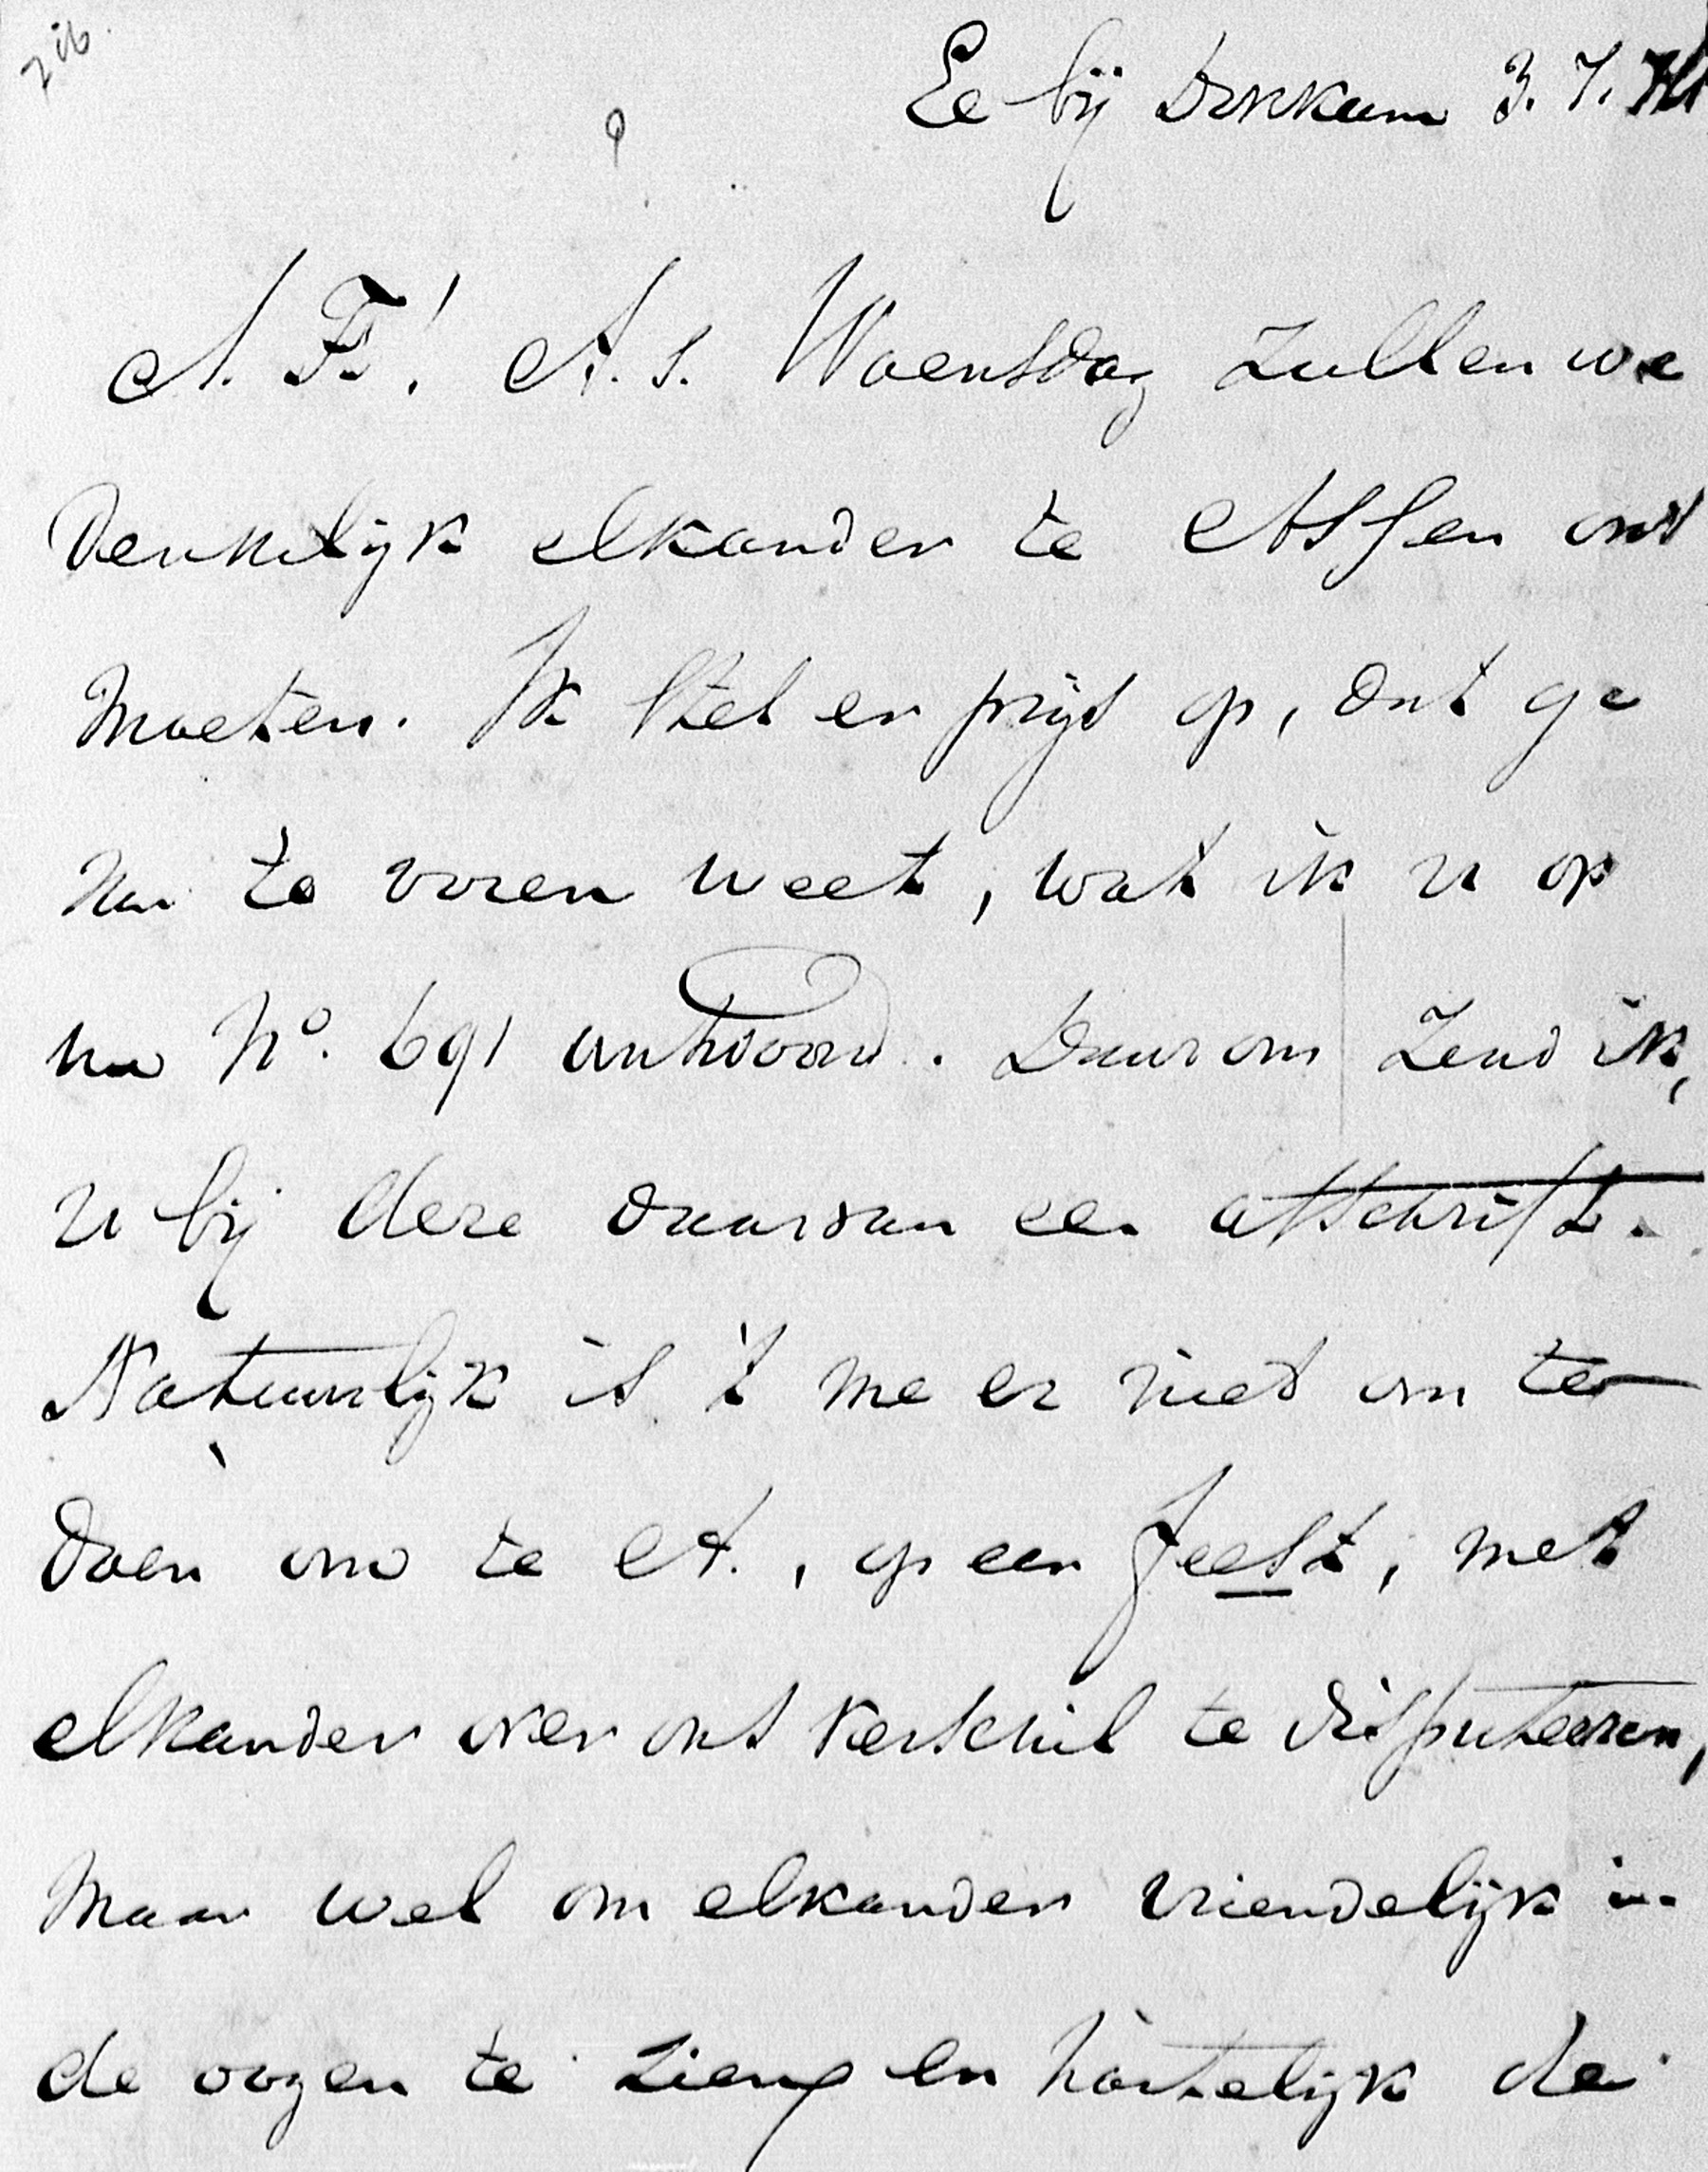 Ee bij Dokkum 3. 7.
A. F! A. s. Woensdag zullen we
denkelijk elkander te Assen ont
moeten. Ik stel er prijs op, dat ge
nu te voren weet, wat ik u op
uw No. 691 antwoord. Daarom zend ik,
u bij deze daarvan een afschrift.
Natuurlijk is 't me er niet om te
doen om te A., op een feest, met
elkander over ons verschil te disputeeren,
maar wel om elkander vriendelijk in
de oogen te zien en hartelijk de